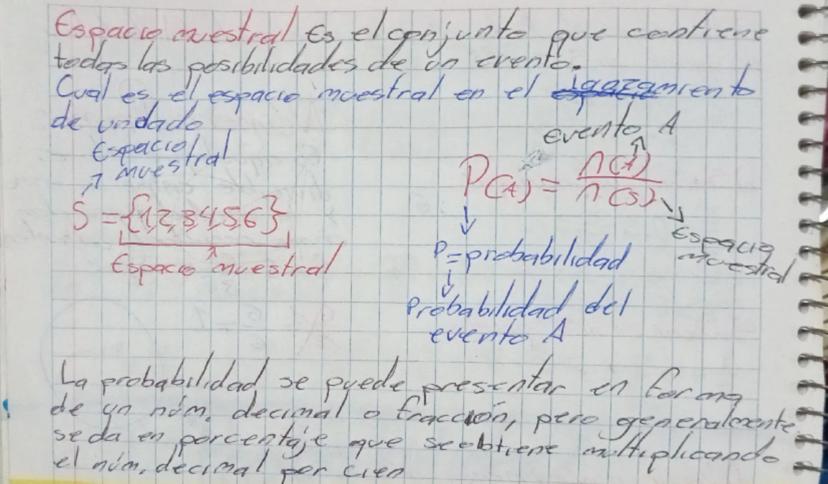 Espacio muestral Es el conjunto que contiene
todas las posibilidades de un evento.
Cual es el espacio muestral en el lanzamiento
de un dado
Espacio
muestral
S = {1,2,3,4,5,6}
Espacio muestral
evento A
P(A) = n(A)/n(S)
Espacio
muestral
P=probabilidad
Probabilidad del
evento A
La probabilidad se puede presentar en forma
de un núm. decimal o fracción, pero generalmente
se da en porcentaje que se obtiene multiplicando
el núm. decimal por cien